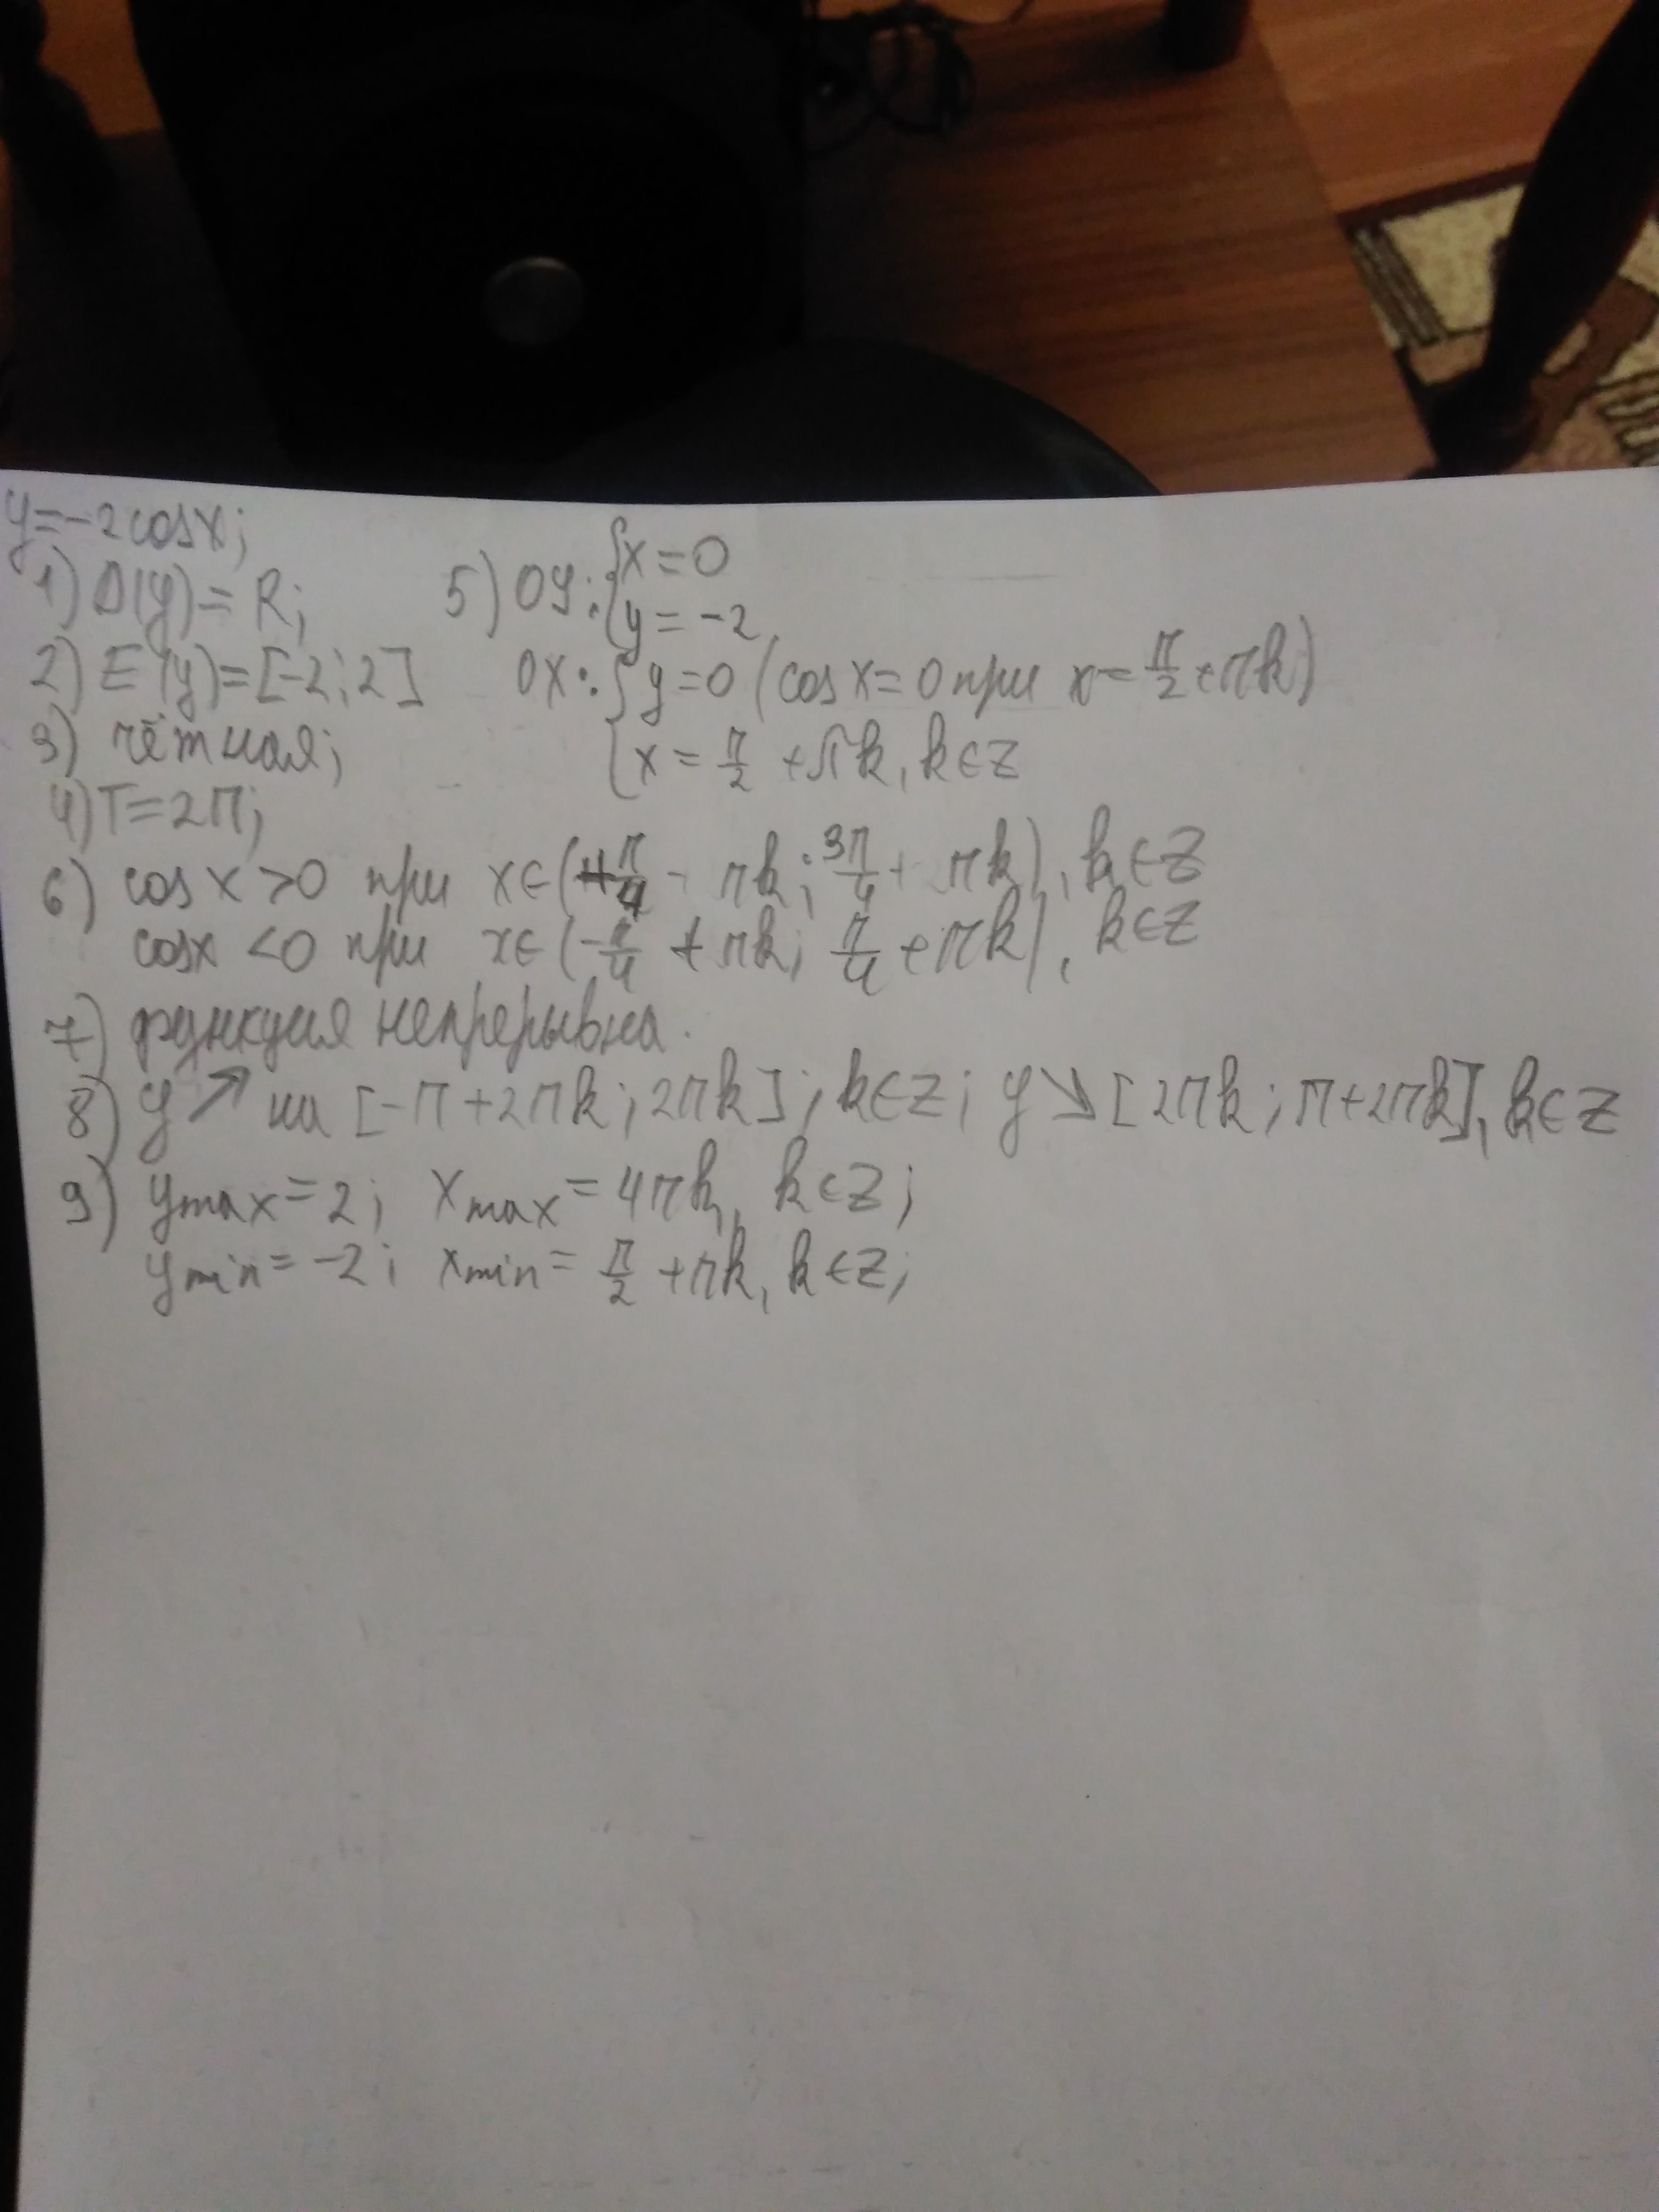 y=-2cosx;
1) D(y)=R;
2) E(y)=[-2;2]
3) чётная;
4) T=2π;
5) OY: {x=0
{y=-2,
OX: {y=0 (cosx=0 при x=π/2+πk)
{x=π/2+πk, k∈Z
6) cosx>0 при x∈(π/4 - πk; 3π/4+ πk), k∈Z
cosx<0 при x∈(-π/4 + πk; π/4+πk), k∈Z
7) функция непрерывна.
8) y↗ на [-π+2πk; 2πk]; k∈Z; y↘ [2πk; π+2πk], k∈Z
9) ymax=2; xmax=4πk, k∈Z;
ymin=-2; xmin=π/2+πk, k∈Z;